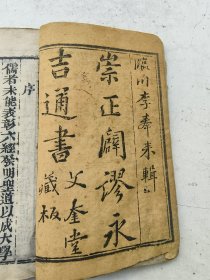 臨川李奉來輯
崇正闢謬永
吉通書
文奎堂
藏板
序
儒者未能表彰六經發明聖道以成大學